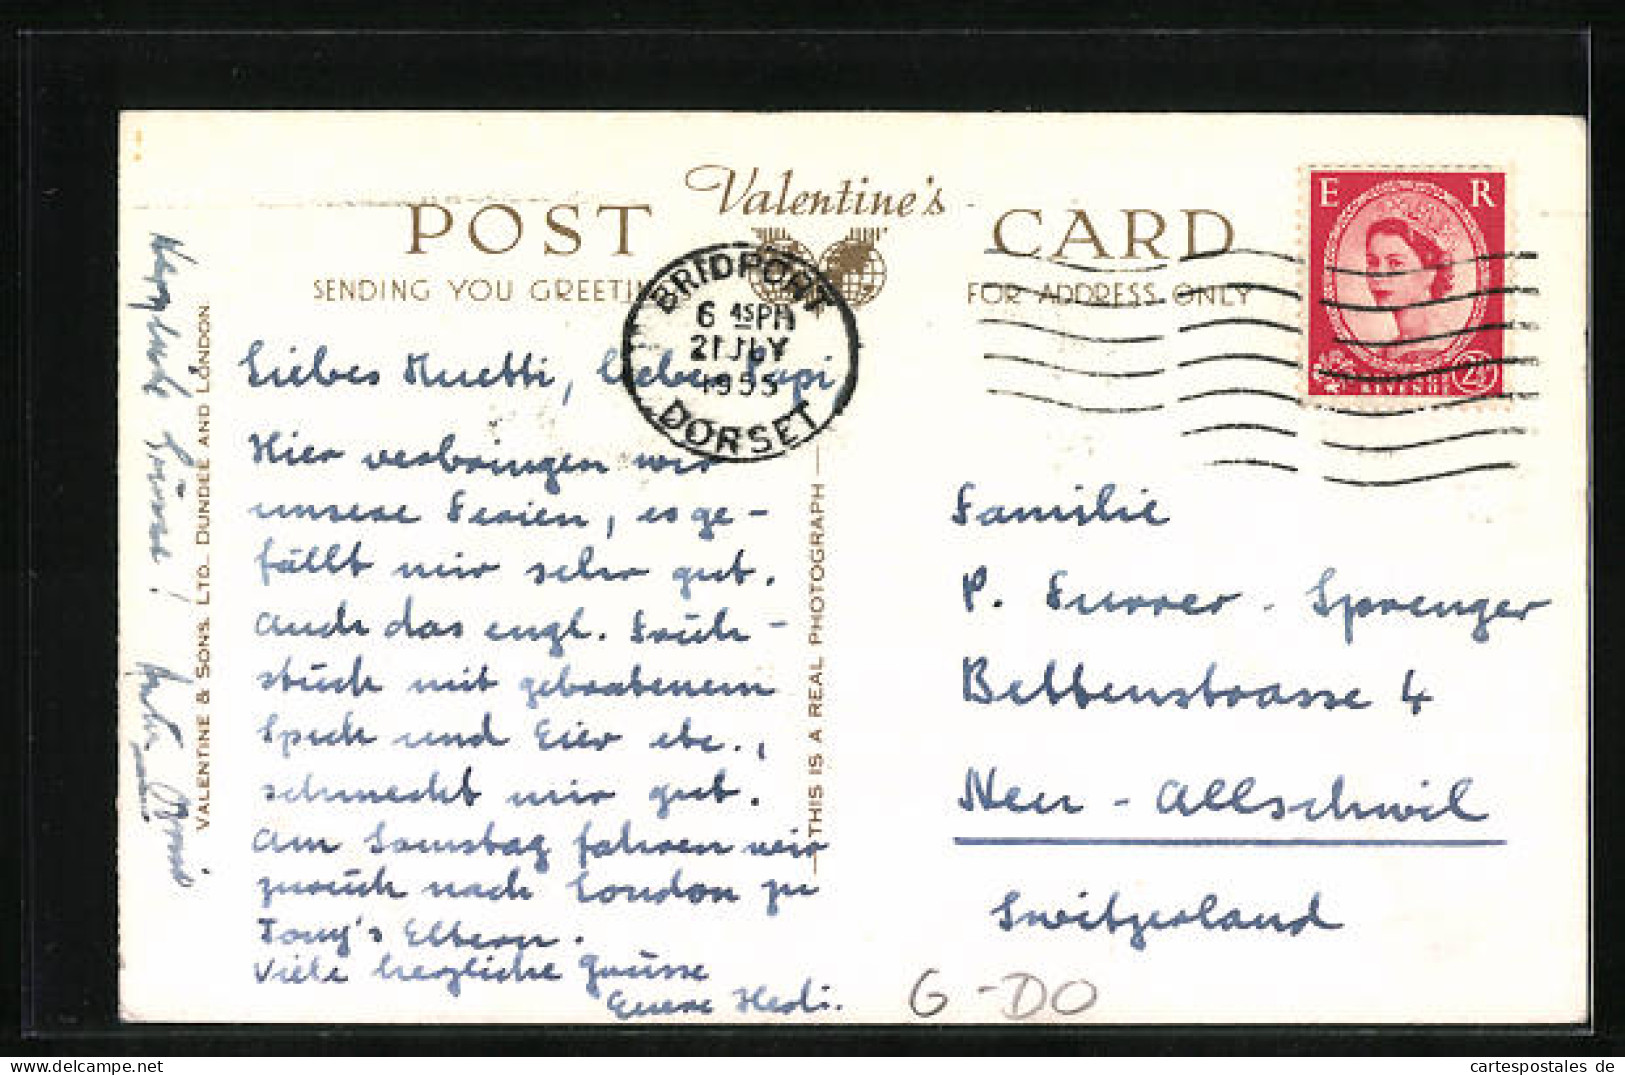 POST Valentine's CARD
SENDING YOU GREETIN
FOR ADDRESS ONLY
BRIDPORT
6 45PM
21 JLY
1955
DORSET
E R
REVENUE 2½
Liebes Muetti, lieber Papi
Hier verbringen wir
unsere Ferien, es ge-
fällt mir sehr gut.
Auch das engl. Früh-
stück mit gebratenem
Speck und Eier etc.,
schmeckt mir gut.
Am Samstag fahren wir
zurück nach London zu
Tony's Eltern.
Viele herzliche Grüsse
Euere Hedi.
Herzliche Grüsse!
VALENTINE & SONS. LTD. DUNDEE AND LONDON.
THIS IS A REAL PHOTOGRAPH
Familie
P. Furrer - Sprenger
Bettenstrasse 4
Neu - Allschwil
Switzerland
G-DO
cartespostales de